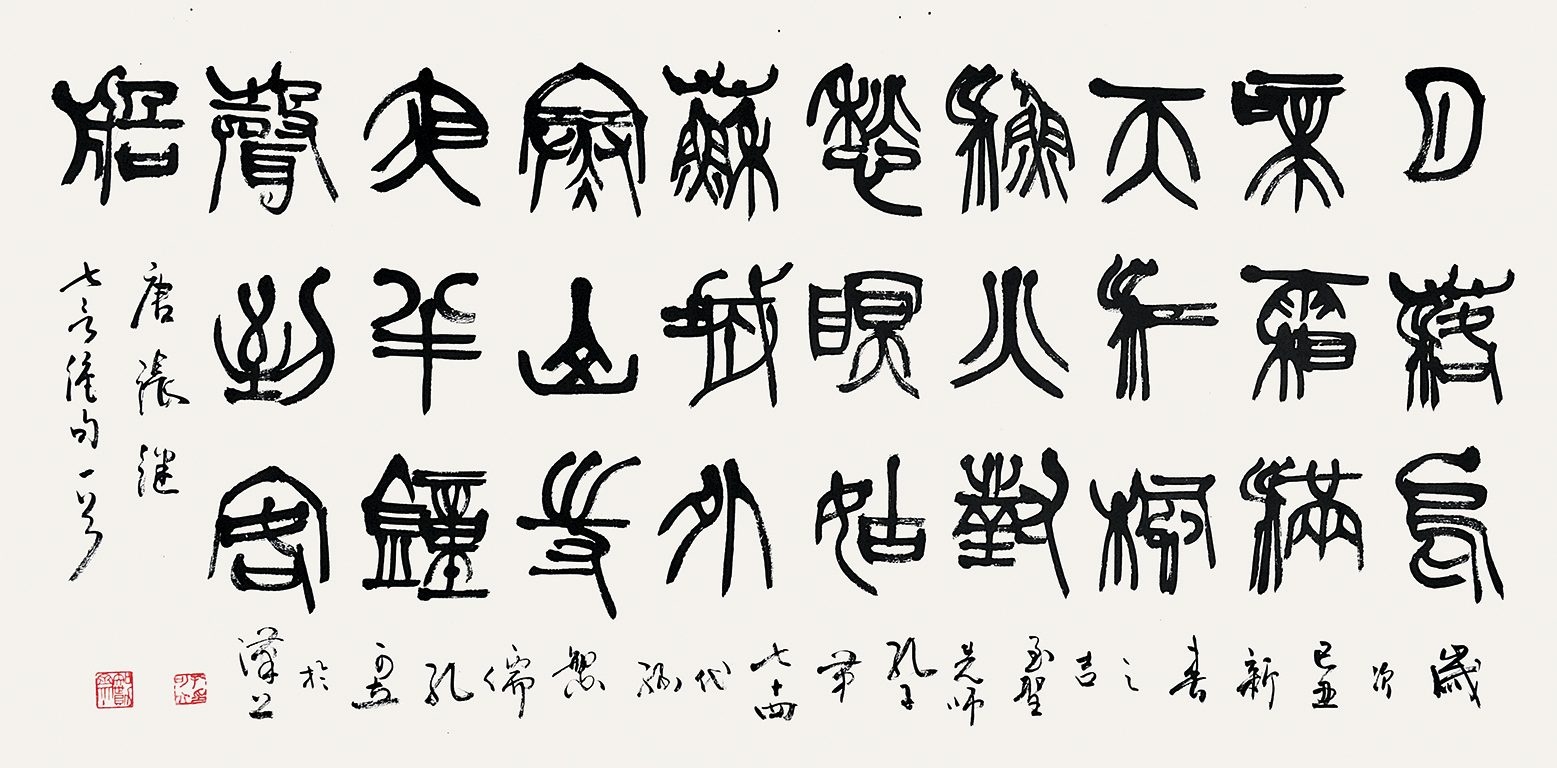 月落烏
啼霜滿
天江楓
漁火對
愁瞑姑
蘇城外
寒山寺
夜半鐘
聲到客
船
唐張繼
七言絕句一首
歲次己丑新春之吉至聖先師孔子第七十四代孫繁儒孔可立於漢上